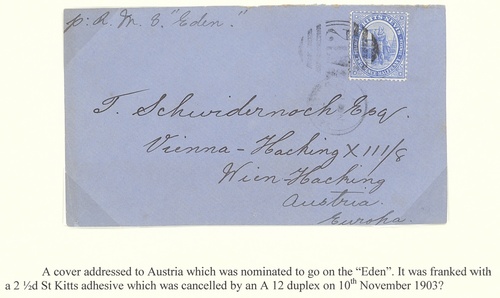 p. R. M. S. "Eden."
KITTS NEVIS
A12
T. Schwidernoch Esq.
Vienna - Hacking XIII/8
Wien-Hacking
Austria.
Europa.
A cover addressed to Austria which was nominated to go on the “Eden”. It was franked with
a 2 ½d St Kitts adhesive which was cancelled by an A 12 duplex on 10th November 1903?